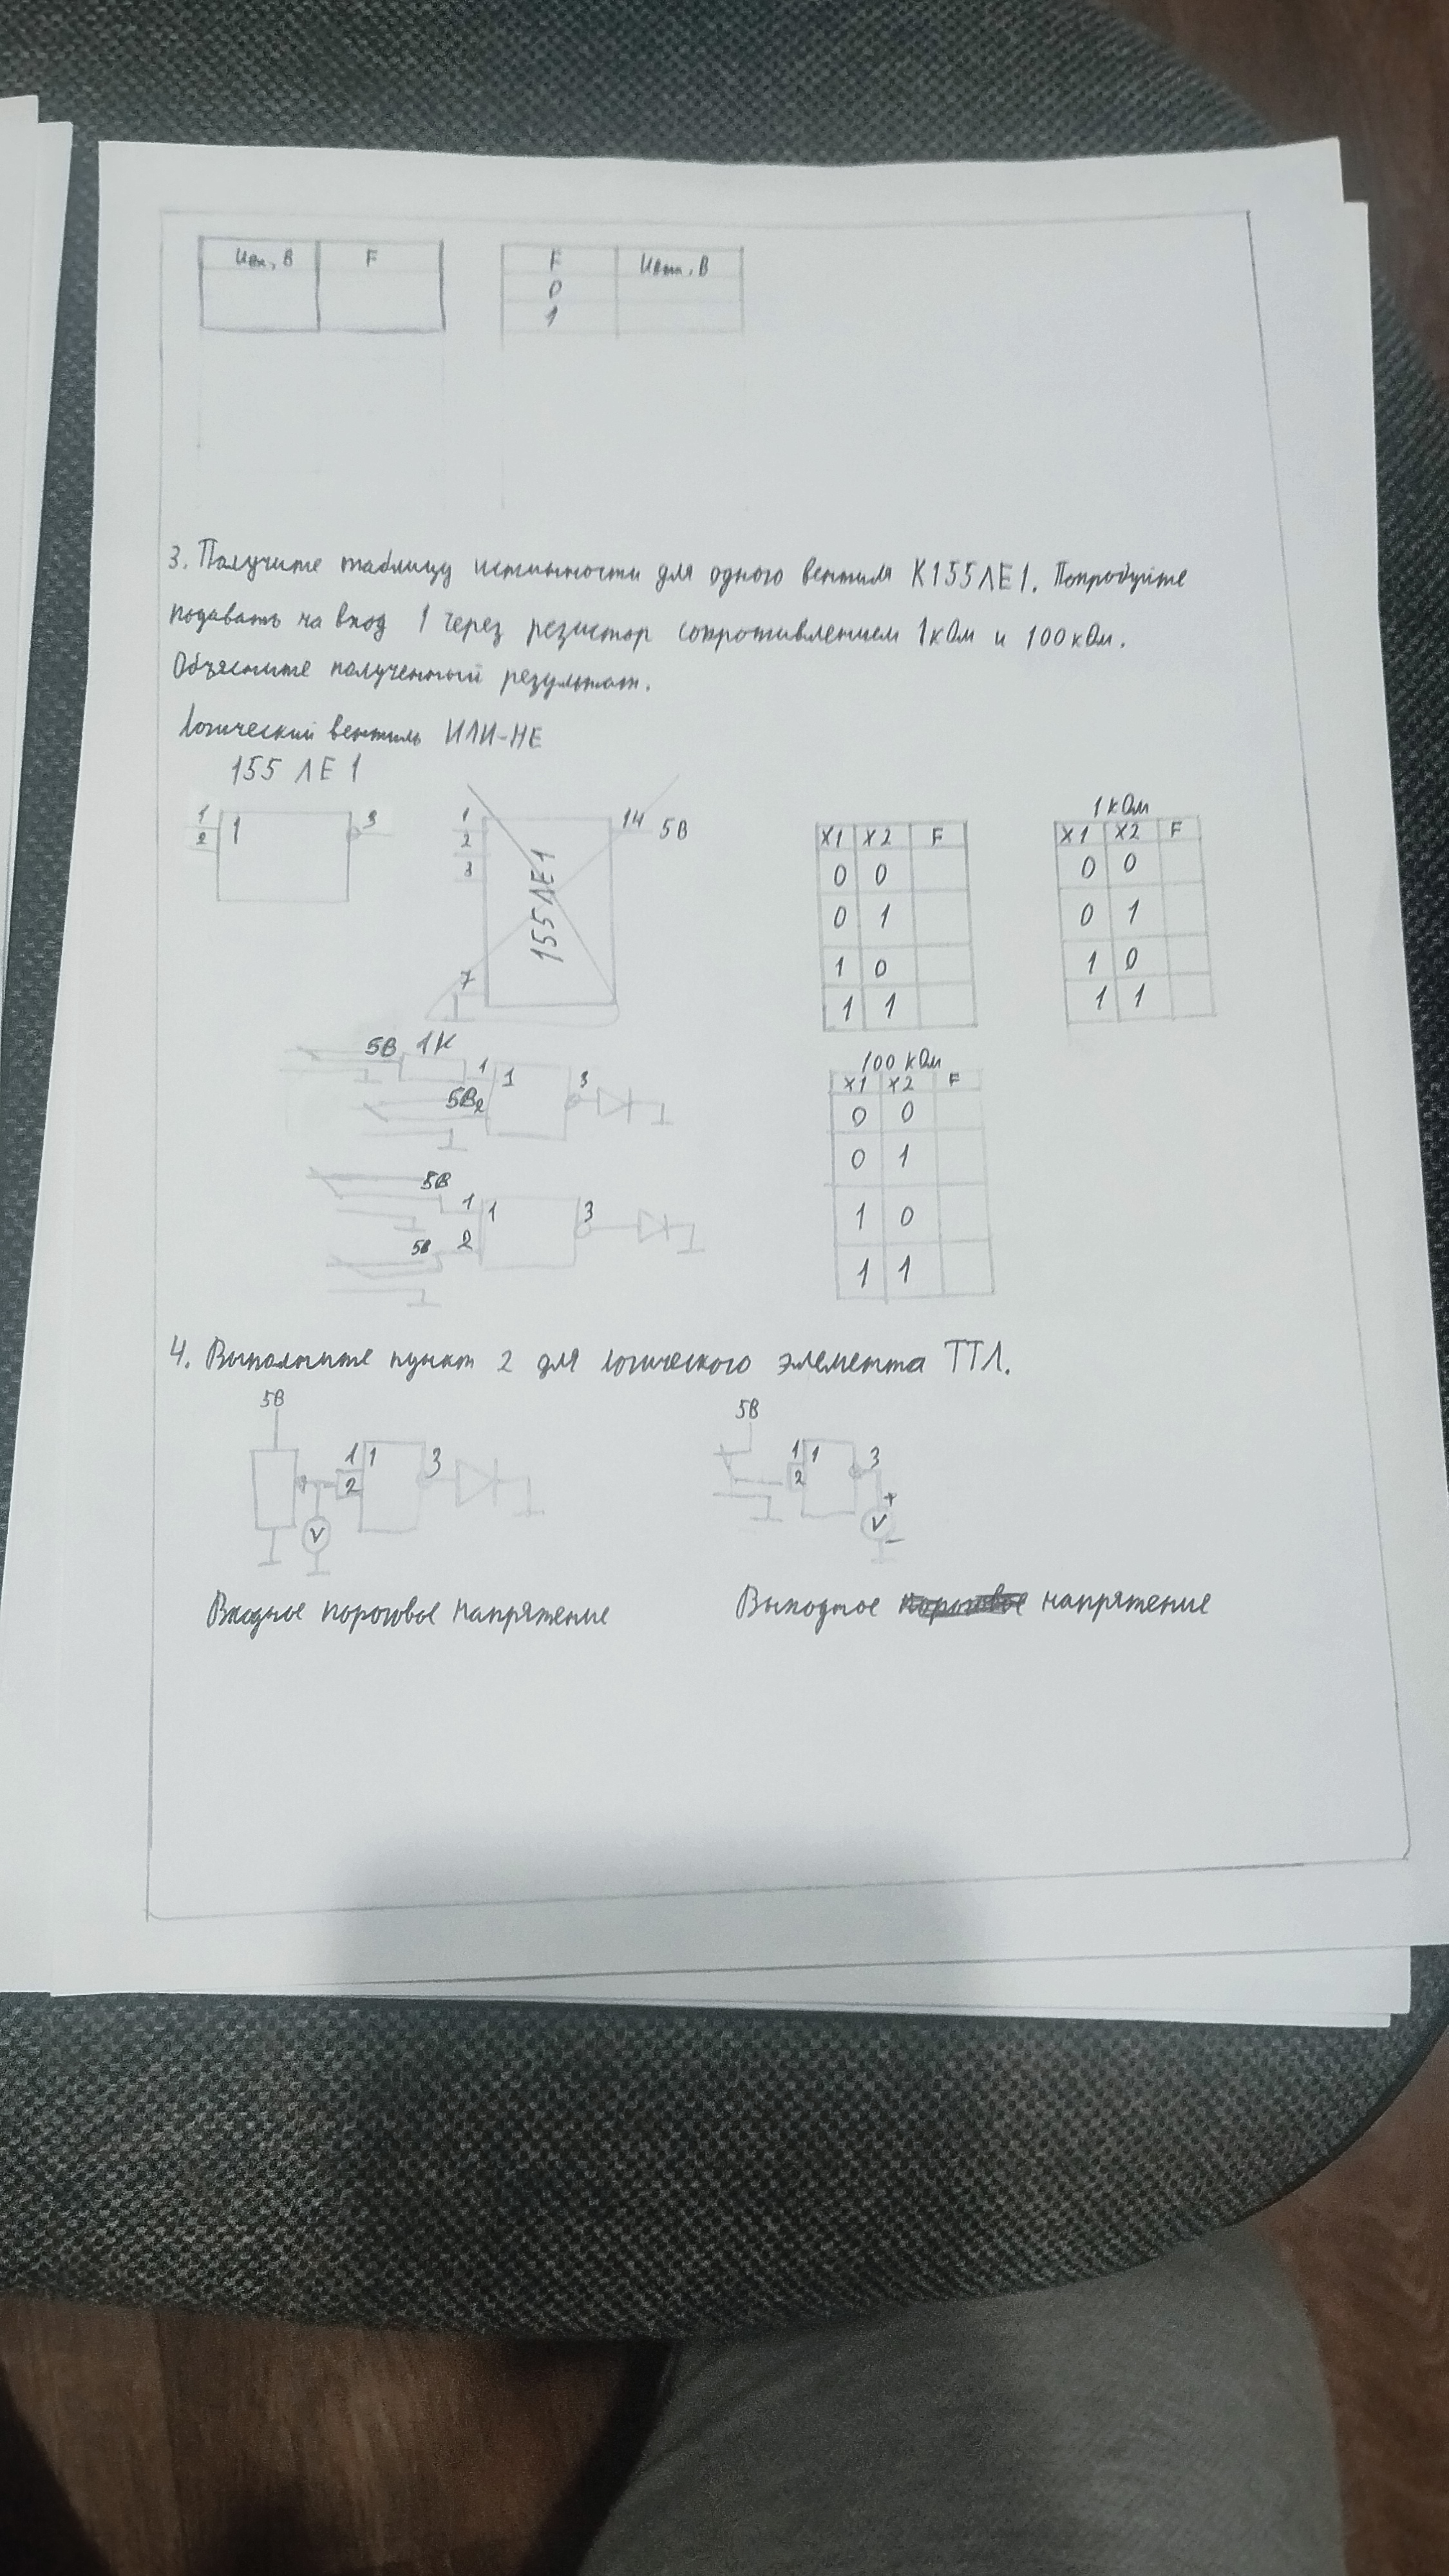 Uвх, В F F Uвых, В
0
1
3. Получите таблицу истинности для одного вентиля К155ЛЕ1. Попробуйте
подавать на вход 1 через резистор сопротивлением 1 кОм и 100 кОм.
Объясните полученный результат.
Логический вентиль ИЛИ-НЕ
155 ЛЕ 1
1 1 3
2
1 14 5В
2
3
155ЛЕ1
7
X1 X2 F
0 0
0 1
1 0
1 1
1 кОм
X1 X2 F
0 0
0 1
1 0
1 1
5В 1К
1 1 3
5В 2
5В
1 1 3
5В 2
100 кОм
X1 X2 F
0 0
0 1
1 0
1 1
4. Выполните пункт 2 для логического элемента ТТЛ.
5В
1 1 3
2
V
5В
1 1 3
2
+
V
–
Входное пороговое напряжение
Выходное пороговое напряжение